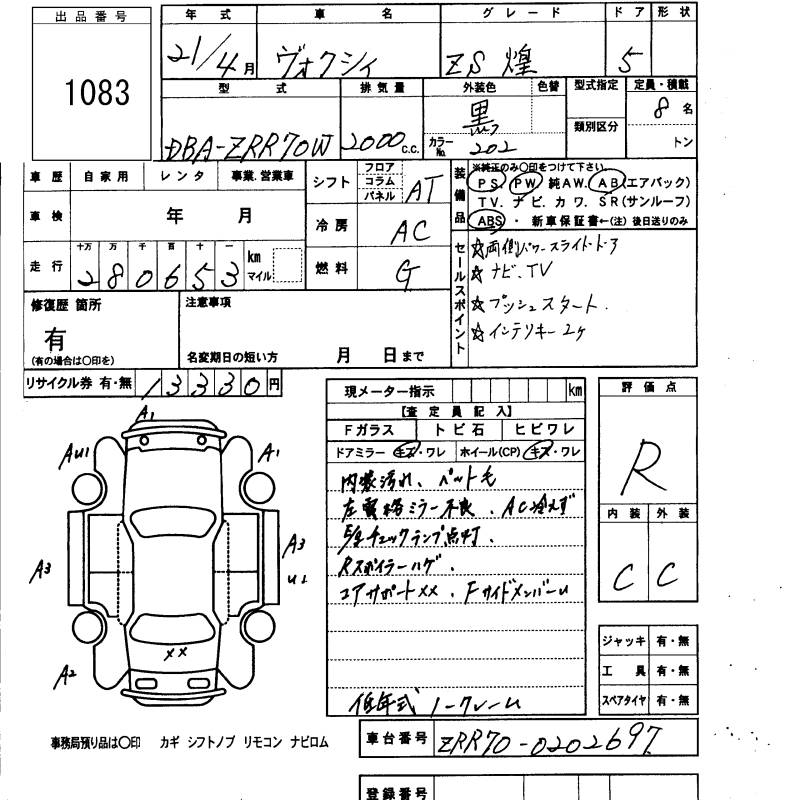 出品番号 年式 車名 グレード ドア 形状
1083 21/4月 ヴォクシィ ZS煌 5
型式 排気量 外装色 色替 型式指定 定員・積載
DBA-ZRR70W 2000c.c. 黒 カラーNo. 202 類別区分 8名
トン
車歴 自家用 レンタ 事業.営業車 シフト フロア コラム パネル AT
装備品 ※純正のみ〇印をつけて下さい。
PS. PW 純AW. AB(エアバック)
TV. ナビ. カワ. SR(サンルーフ)
ABS ・ 新車保証書←(注) 後日送りのみ
車検 年 月 冷房 AC
走行 十万 万 千 百 十 一 280653 km マイル 燃料 G
セールスポイント
☆両側パワースライドドア
☆ナビ.TV
☆プッシュスタート.
☆インテリキー2ヶ
修復歴 箇所 注意事項
有
(有の場合は〇印を) 名変期日の短い方 月 日まで
リサイクル券 有・無 13330円
現メーター指示 km
【査定員記入】
Fガラス トビ石 ヒビワレ
ドアミラー キズ・ワレ ホイール(CP) キズ・ワレ
内装汚れ、ペット毛
左電格ミラー不良、AC冷えず
E/gチェックランプ点灯、
Rスポイラーハゲ、
コアサポートXX、FサイドメンバーU
低年式ノークレーム
評価点
R
内装 外装
C C
A1
AU1 A1
A3 A3
U1
A2 XX
ジャッキ 有・無
工具 有・無
スペアタイヤ 有・無
事務局預り品は〇印 カギ シフトノブ リモコン ナビロム
車台番号 ZRR70-0202697
登録番号